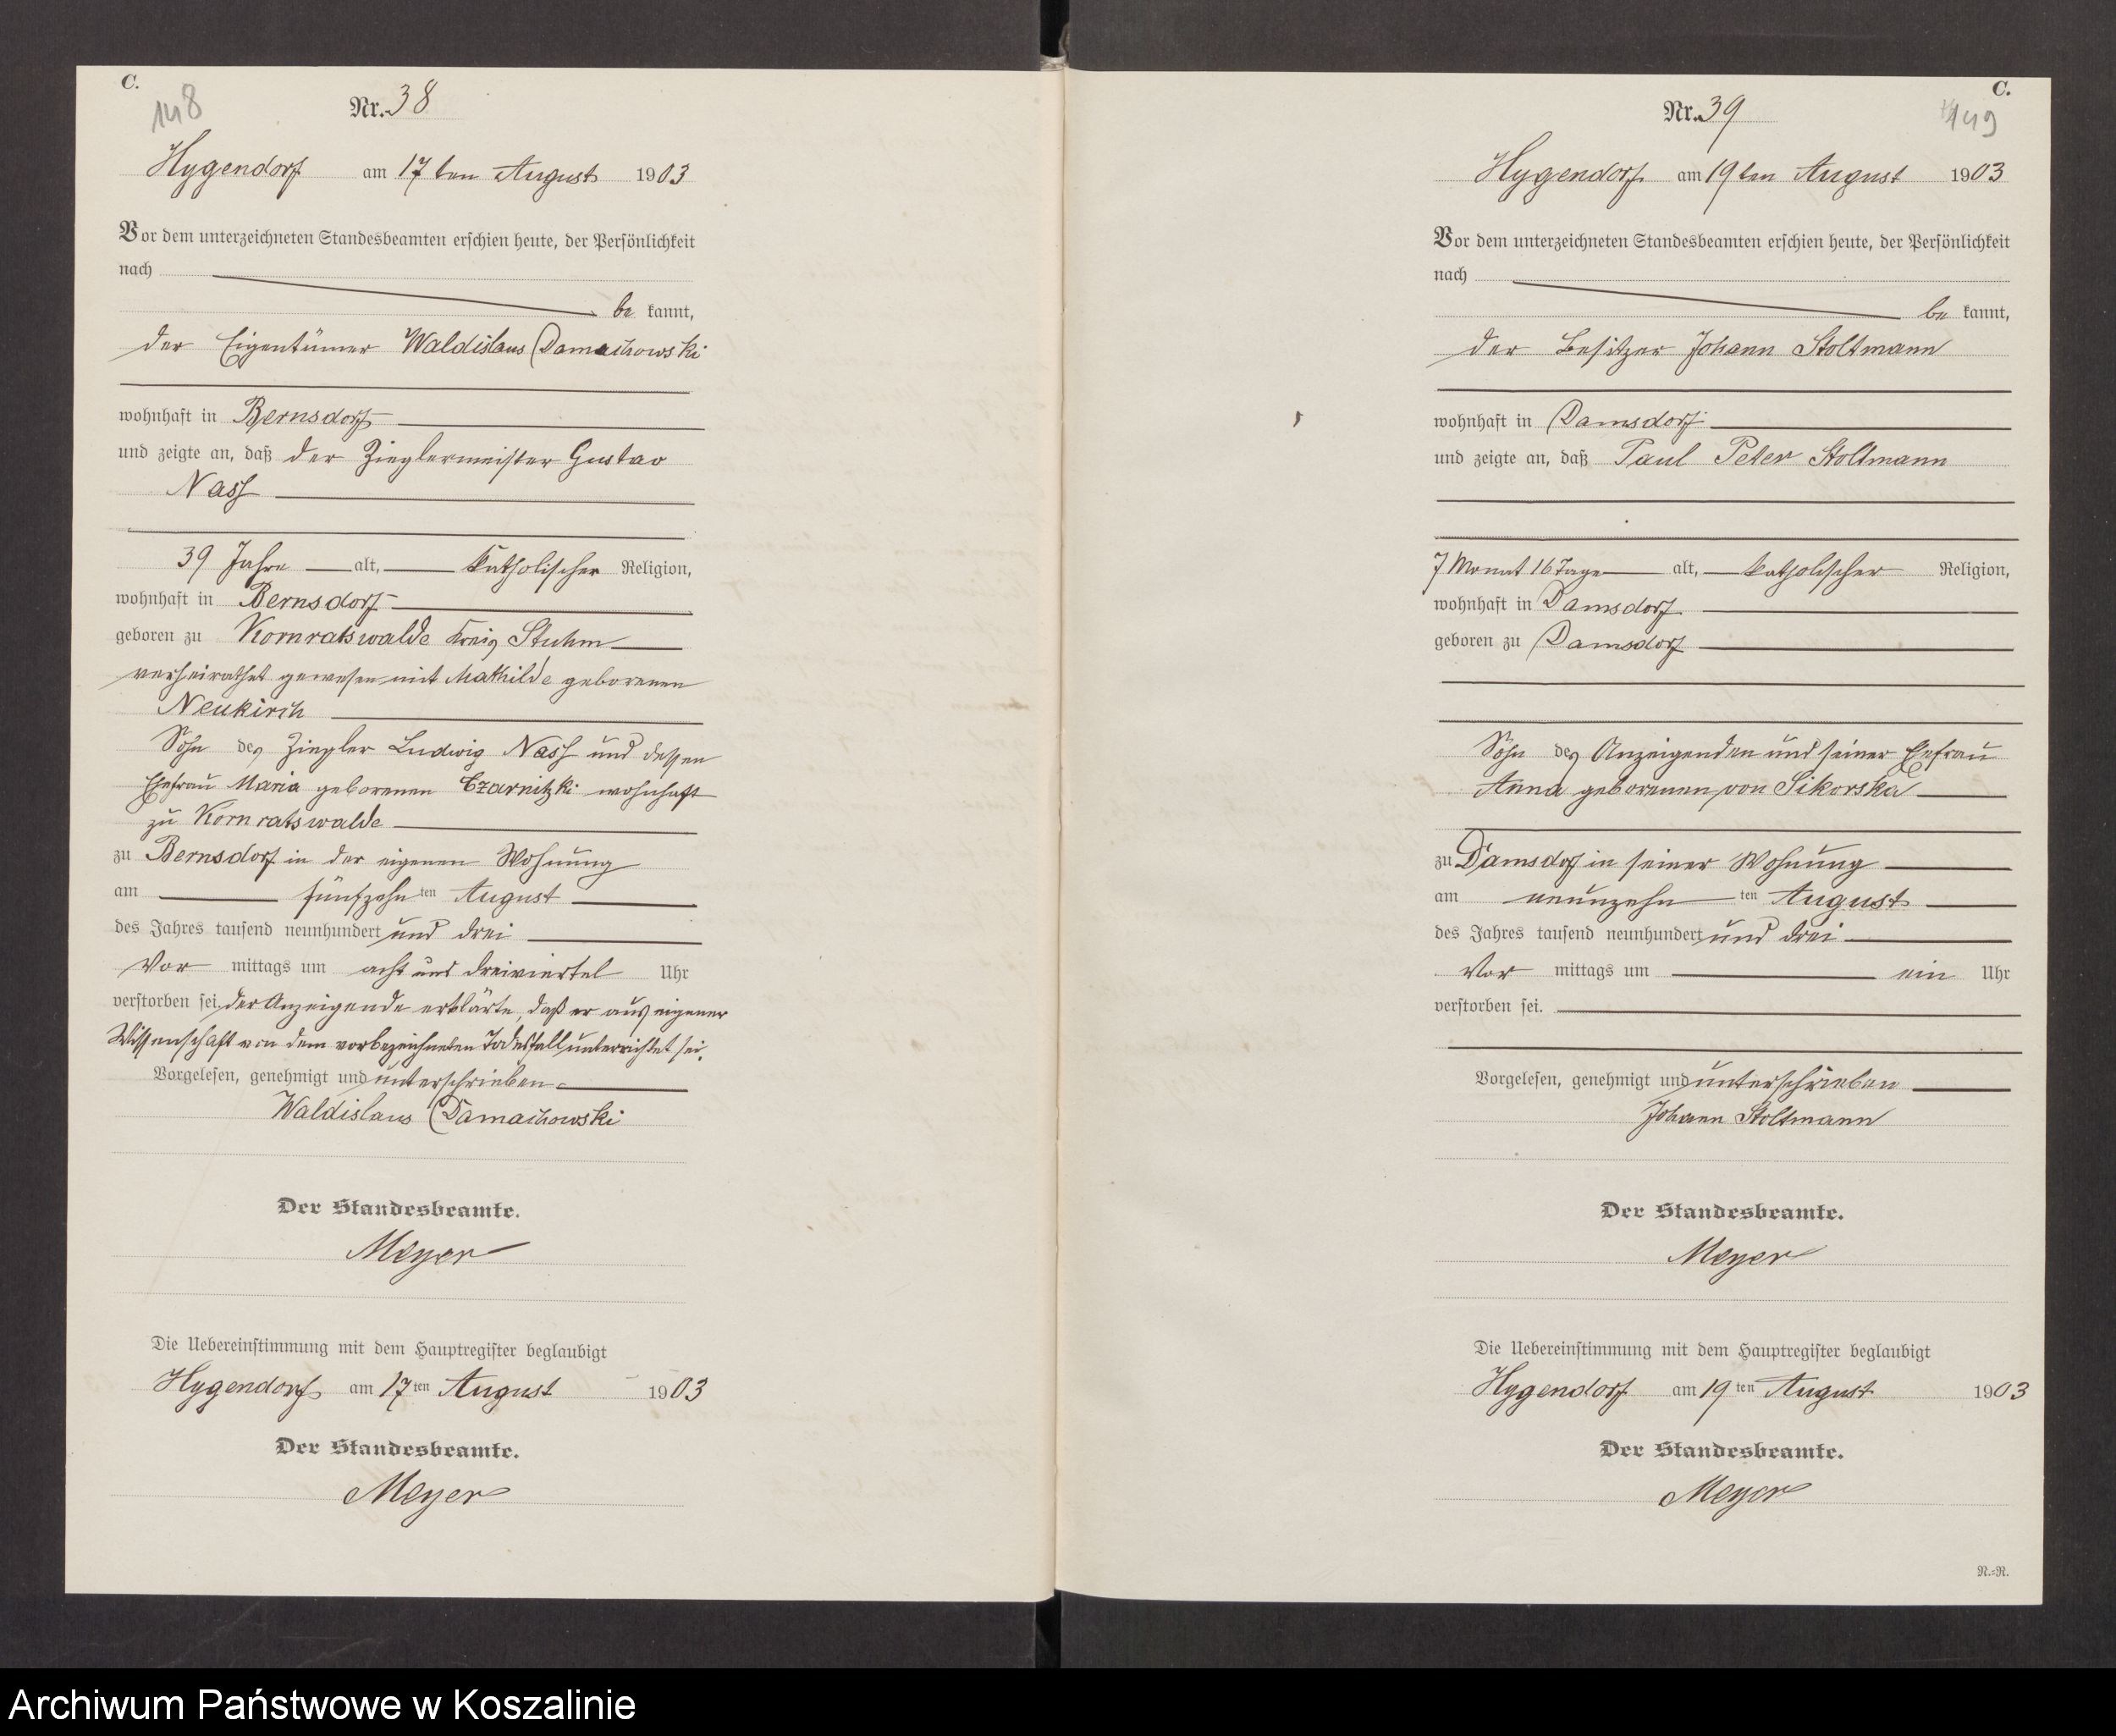 C.
148
Nr. 38
Hygendorf am 17ten August 1903
Vor dem unterzeichneten Standesbeamten erschien heute, der Persönlichkeit
nach
be kannt,
der Eigentümer Waldislaus Damachowski
wohnhaft in Bernsdorf
und zeigte an, daß der Zieglermeister Gustav
Nass
39 Jahre alt, katholischer Religion,
wohnhaft in Bernsdorf
geboren zu Konratswalde Kreis Stuhm
verheirathet gewesen mit Mathilde geborenen
Neukirch
Sohn des Ziegler Ludwig Nass und dessen
Ehefrau Maria geborenen Czarnitzki wohnhaft
zu Konratswalde
zu Bernsdorf in der eigenen Wohnung
am fünfzehn ten August
des Jahres tausend neunhundert und drei
Vor mittags um acht und dreiviertel Uhr
verstorben sei, der Anzeigende erklärte, daß er aus eigener
Wissenschaft von dem vorbezeichneten Todesfall unterrichtet sei.
Vorgelesen, genehmigt und unterschrieben
Waldislaus Damachowski
Der Standesbeamte.
Meyer
Die Uebereinstimmung mit dem Hauptregister beglaubigt
Hygendorf am 17 ten August 1903
Der Standesbeamte.
Meyer
C.
149
Nr. 39
Hygendorf am 19ten August 1903
Vor dem unterzeichneten Standesbeamten erschien heute, der Persönlichkeit
nach
be kannt,
der Besitzer Johann Stoltmann
wohnhaft in Damsdorf
und zeigte an, daß Paul Peter Stoltmann
7 Monat 16 Tage alt, katholischer Religion,
wohnhaft in Damsdorf
geboren zu Damsdorf
Sohn des Anzeigenden und seiner Ehefrau
Anna geborenen von Sikorska
zu Damsdorf in seiner Wohnung
am neunzehn ten August
des Jahres tausend neunhundert und drei
Vor mittags um ein Uhr
verstorben sei.
Vorgelesen, genehmigt und unterschrieben
Johann Stoltmann
Der Standesbeamte.
Meyer
Die Uebereinstimmung mit dem Hauptregister beglaubigt
Hygendorf am 19 ten August 1903
Der Standesbeamte.
Meyer
N.-N.
Archiwum Państwowe w Koszalinie